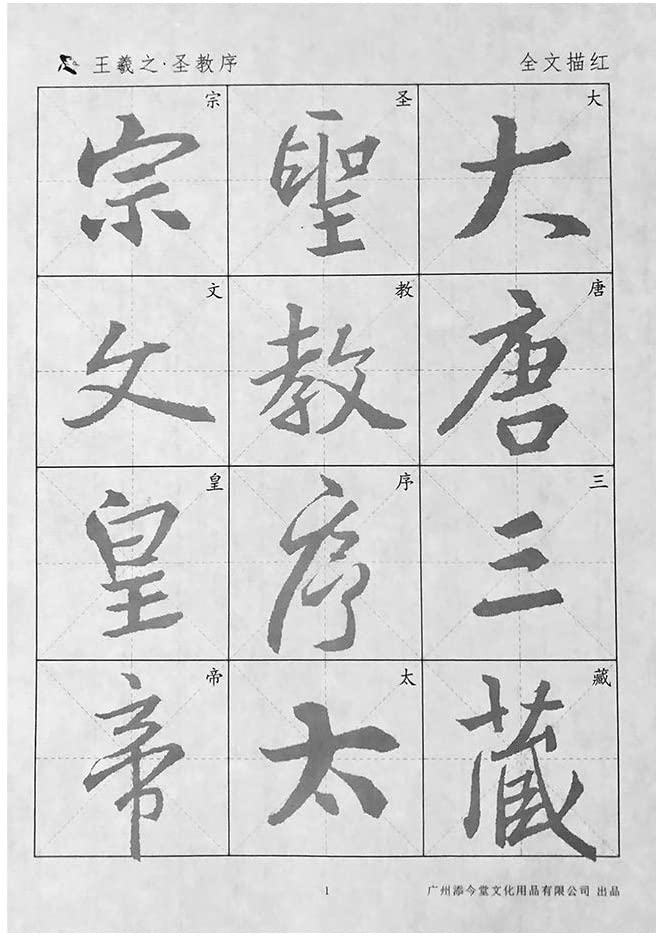 王羲之·圣教序
全文描红
大 大
唐 唐
三 三
藏 藏
圣 聖
教 教
序 序
太 太
宗 宗
文 文
皇 皇
帝 帝
1
广州添今堂文化用品有限公司 出品